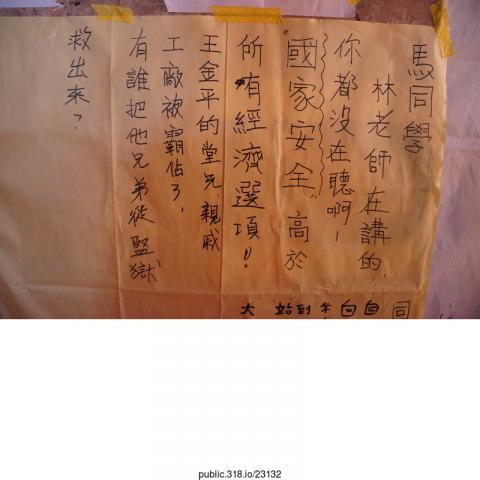 馬同學：
林老師在講的，
你都沒在聽啊！
"國家安全"高於
所有經濟選項!!
王金平的堂兄、親戚
工廠被霸佔了，
有誰把他兄弟從監獄
救出來？
同
自
白
到
始
大
public.318.io/23132